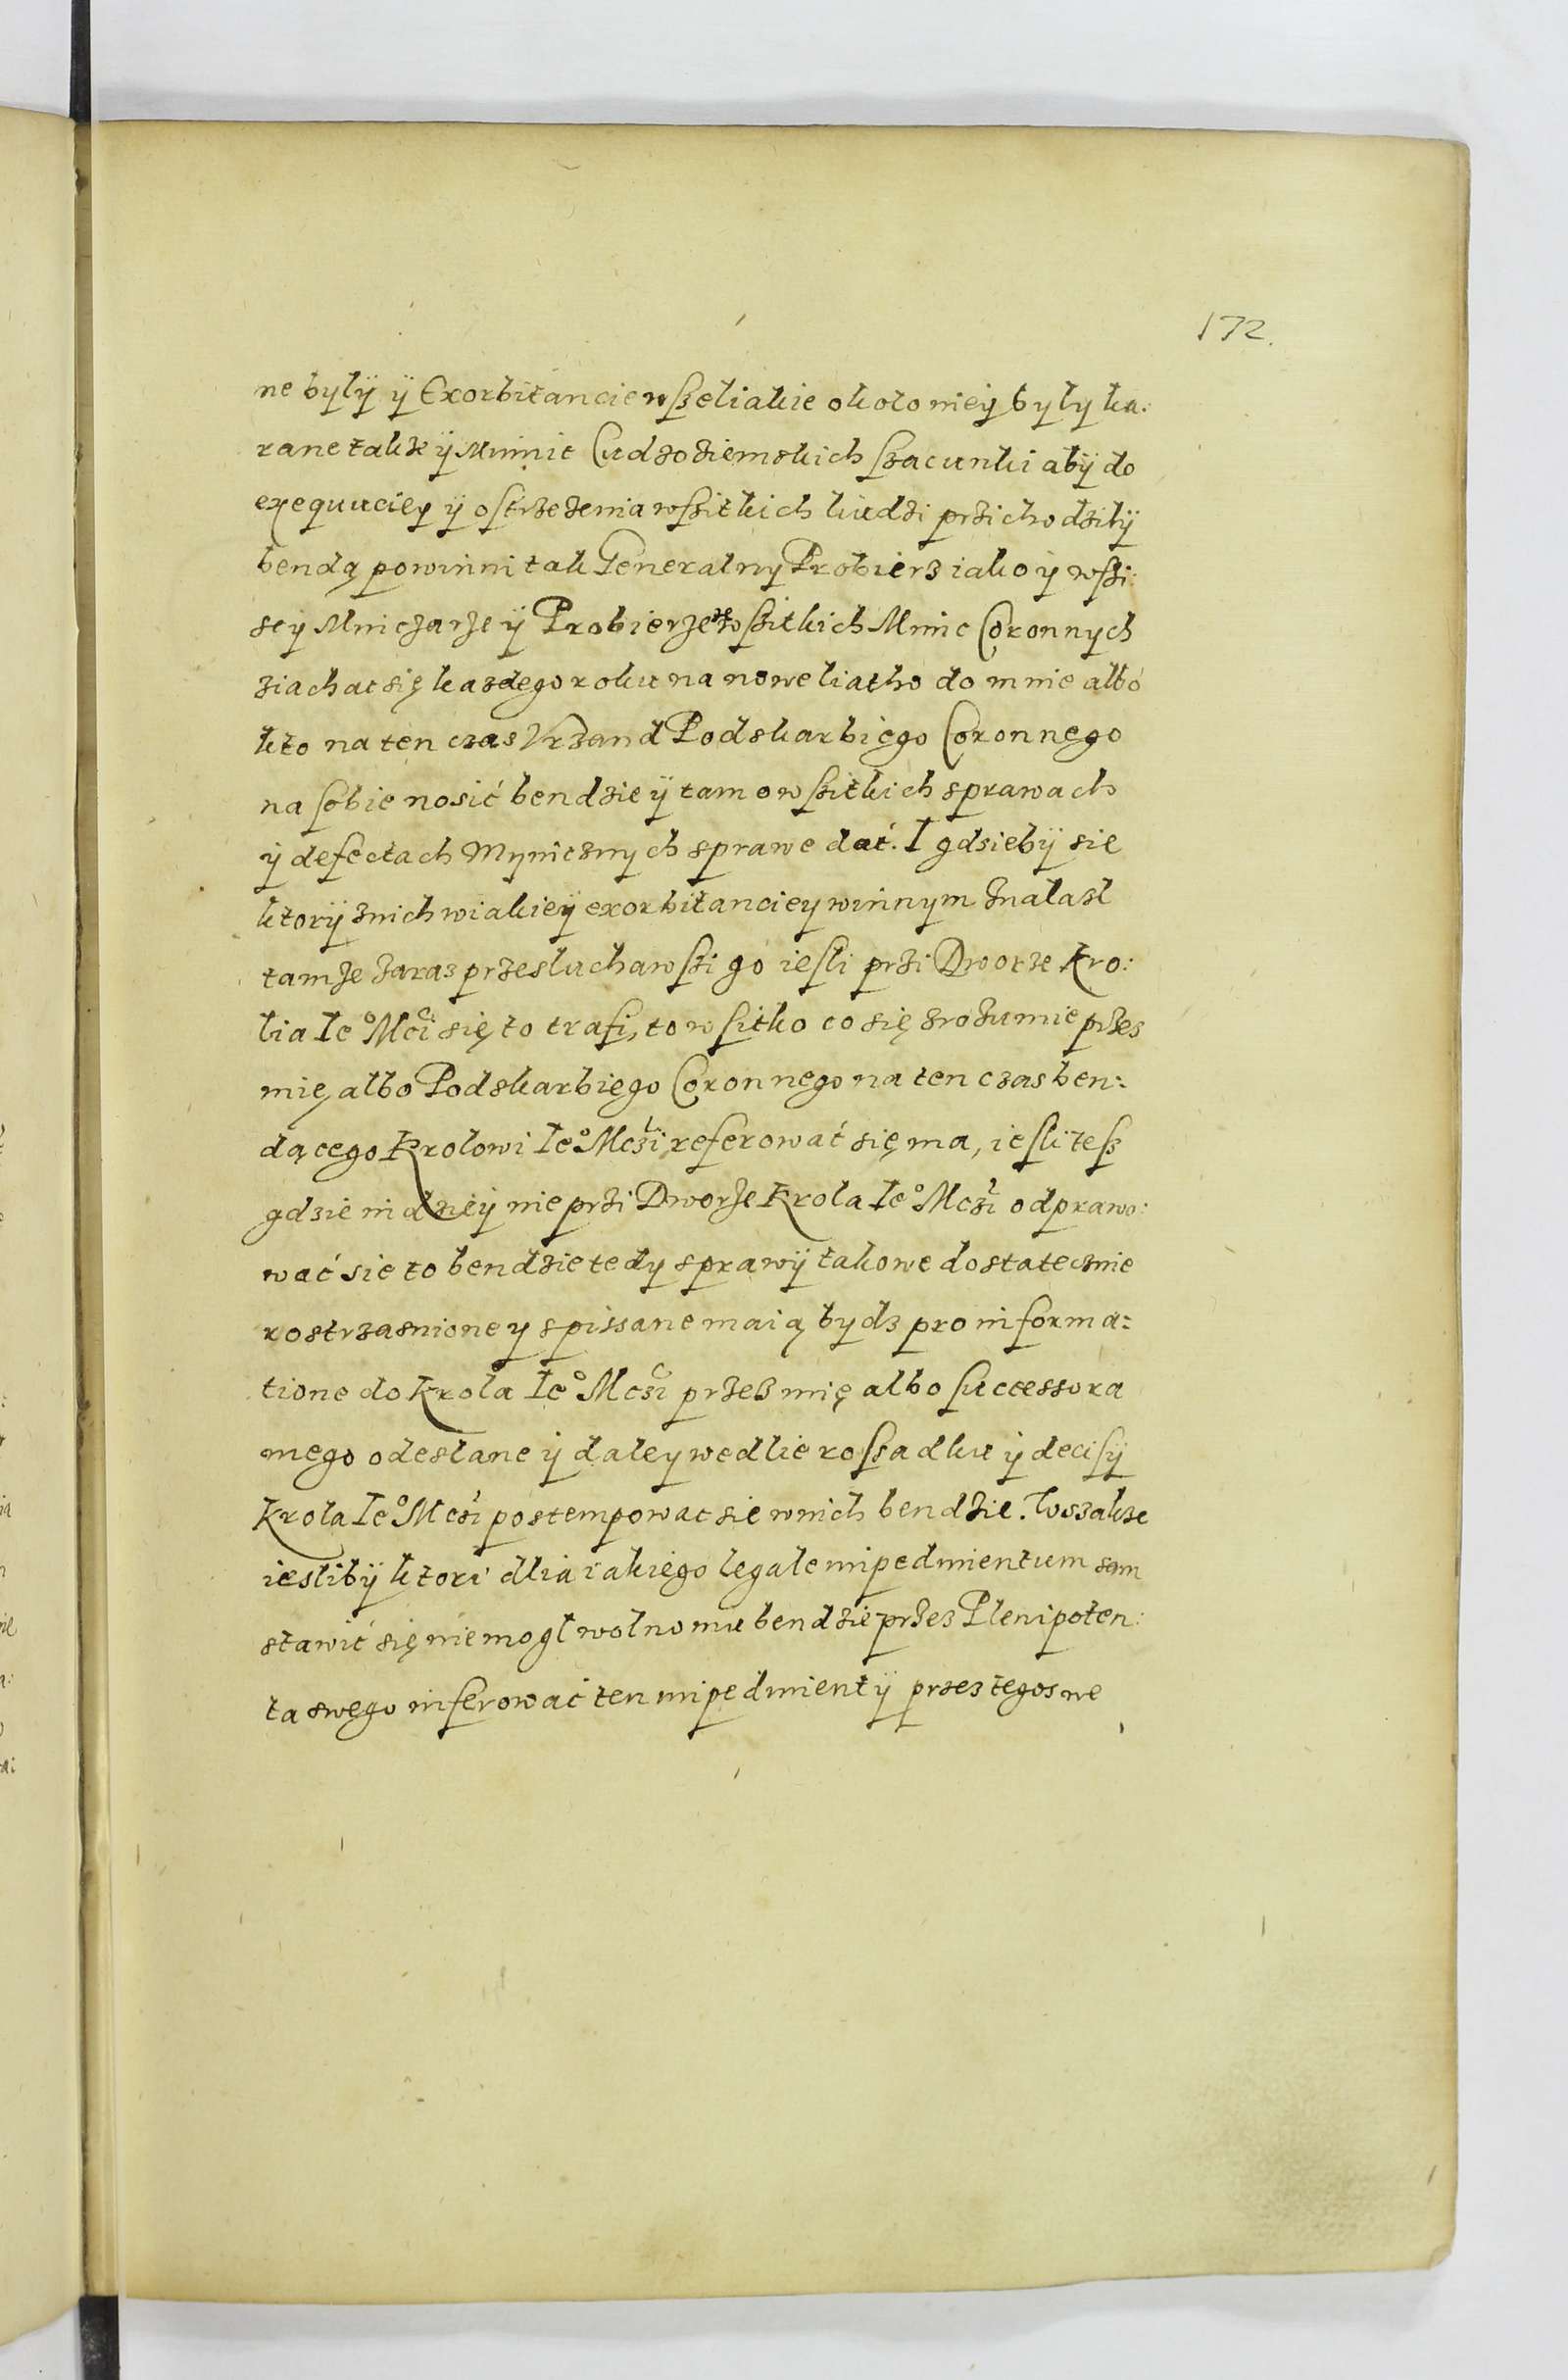 172.
ne bylÿ ÿ Exorbitancie wszeliakie okolo nieÿ byly ka:
rane takze ÿ Minnic Cudzoziemskich szacunki abÿ do
exequuciey ÿ ostrzezenia wszitkich ludzi przichodzilÿ
bendą powinni tak Generalny Probierz iako ÿ wszi:
scy Mniczarze ÿ Probierze ze wszitkich Minic Coronnych
ziachac się kazdego roku na nowe liatho do mnie albo
kto na ten czas Vrzand Podskarbiego Coronnego
na sobie nosić bendzie ÿ tam o wszitkich sprawach
ÿ defectach Mynicznych sprawe dać. I gdziebÿ sie
ktorÿ znich wiakieÿ exorbitanciey winnym znalazl
tamze zaraz przesluchawszi go iesli przi Dworze Kro:
lia Ie° Mci się to trafi, to wszitko co się zrozumie przez
mię albo Podskarbiego Coronnego na ten czas ben:
dącego Krolowi Ie° Mczi referować się ma, iesli tesz
gdzie indzieÿ nie przi Dworze Krola Ie° Mczi odprawo:
wać sie to bendzie tedy sprawÿ takowe dostatecznie
rostrzasnione y spissane maią bydz pro informa:
tione do Krola Ie° Mczi przez mię albo successora
mego odeslane ÿ daley wedlie rossadku ÿ decisÿ
Krola Ie° Mczi postempowac sie wnich bendzie. Wszakze
ieslibÿ ktori dlia iakiego legale inpedmientum sam
stawić się nie mogl wolno mu bendzie przez Plenipoten:
ta swego inferować ten inpedmient ÿ przez tegoz we